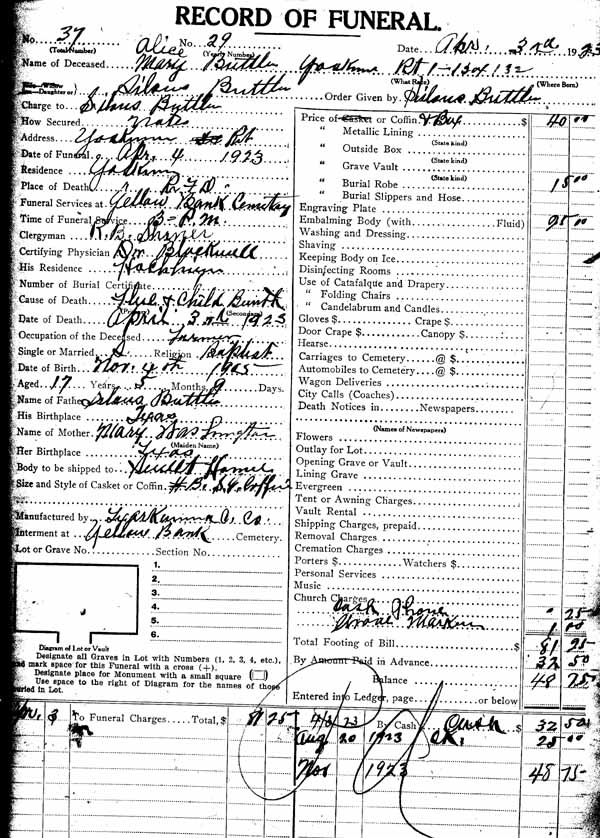 RECORD OF FUNERAL.
No. 37 No. 29 Date Apr. 3rd 1923
(Total Number) (Yearly Number)
Name of Deceased Alice Mary Buttler Yoakum Rt 1-Box 132
(What Race) (Where Born)
(or Daughter of) Silous Buttler Order Given by Silous Buttler
Charge to Silous Buttler
How Secured Notes
Address Yoakum Rt
Date of Funeral Apr. 4 1923
Residence Yoakum
Place of Death R. F. D.
Funeral Services at Yellow Bank Cemetery
Time of Funeral Service 3-P.M.
Clergyman R. B.
Certifying Physician Dr. Blackwell
His Residence
Number of Burial Certificate
Cause of Death Flue & Child Buirth
(Secondary)
Date of Death April 3rd 1923
Occupation of the Deceased Farmin
Single or Married S. Religion Baptist
Date of Birth Nov. 4th 1905
Aged 17 Years, 5 Months, Days.
Name of Father Silous Buttler
His Birthplace Texas
Name of Mother Mary Washington
(Maiden Name)
Her Birthplace Texas
Body to be shipped to
Size and Style of Casket or Coffin Coffin
Manufactured by C. Co.
Interment at Yellow Bank Cemetery.
Lot or Grave No. Section No.
1.
2.
3.
4.
5.
6.
Diagram of Lot or Vault
Designate all Graves in Lot with Numbers (1, 2, 3, 4, etc.),
and mark space for this Funeral with a cross (+).
Designate place for Monument with a small square
Use space to the right of Diagram for the names of those
buried in Lot.
Price of Casket or Coffin & Box $ 40 00
" Metallic Lining
(State kind)
" Outside Box
(State kind)
" Grave Vault
(State kind)
" Burial Robe 15 00
" Burial Slippers and Hose
Engraving Plate
Embalming Body (with Fluid) 25 00
Washing and Dressing
Shaving
Keeping Body on Ice
Disinfecting Rooms
Use of Catafalque and Drapery
" Folding Chairs
" Candelabrum and Candles
Gloves $ Crape $
Door Crape $ Canopy $
Hearse
Carriages to Cemetery @ $
Automobiles to Cemetery @ $
Wagon Deliveries
City Calls (Coaches)
Death Notices in Newspapers
(Names of Newspapers)
Flowers
Outlay for Lot
Opening Grave or Vault
Lining Grave
Evergreen
Tent or Awning Charges
Vault Rental
Shipping Charges, prepaid
Removal Charges
Cremation Charges
Porters $ Watchers $
Personal Services
Music
Church Charges
Cash Phone 25
Grave Marker 1 00
Total Footing of Bill $ 81 25
By Amount Paid in Advance 32 50
Balance 48 75
Entered into Ledger, page or below
Apr. 3 To Funeral Charges Total, $ 81 25 4/3/23 By Cash Cash $ 32 50
Aug 20 1923 Ck. 25 00
Nov 1923 48 75